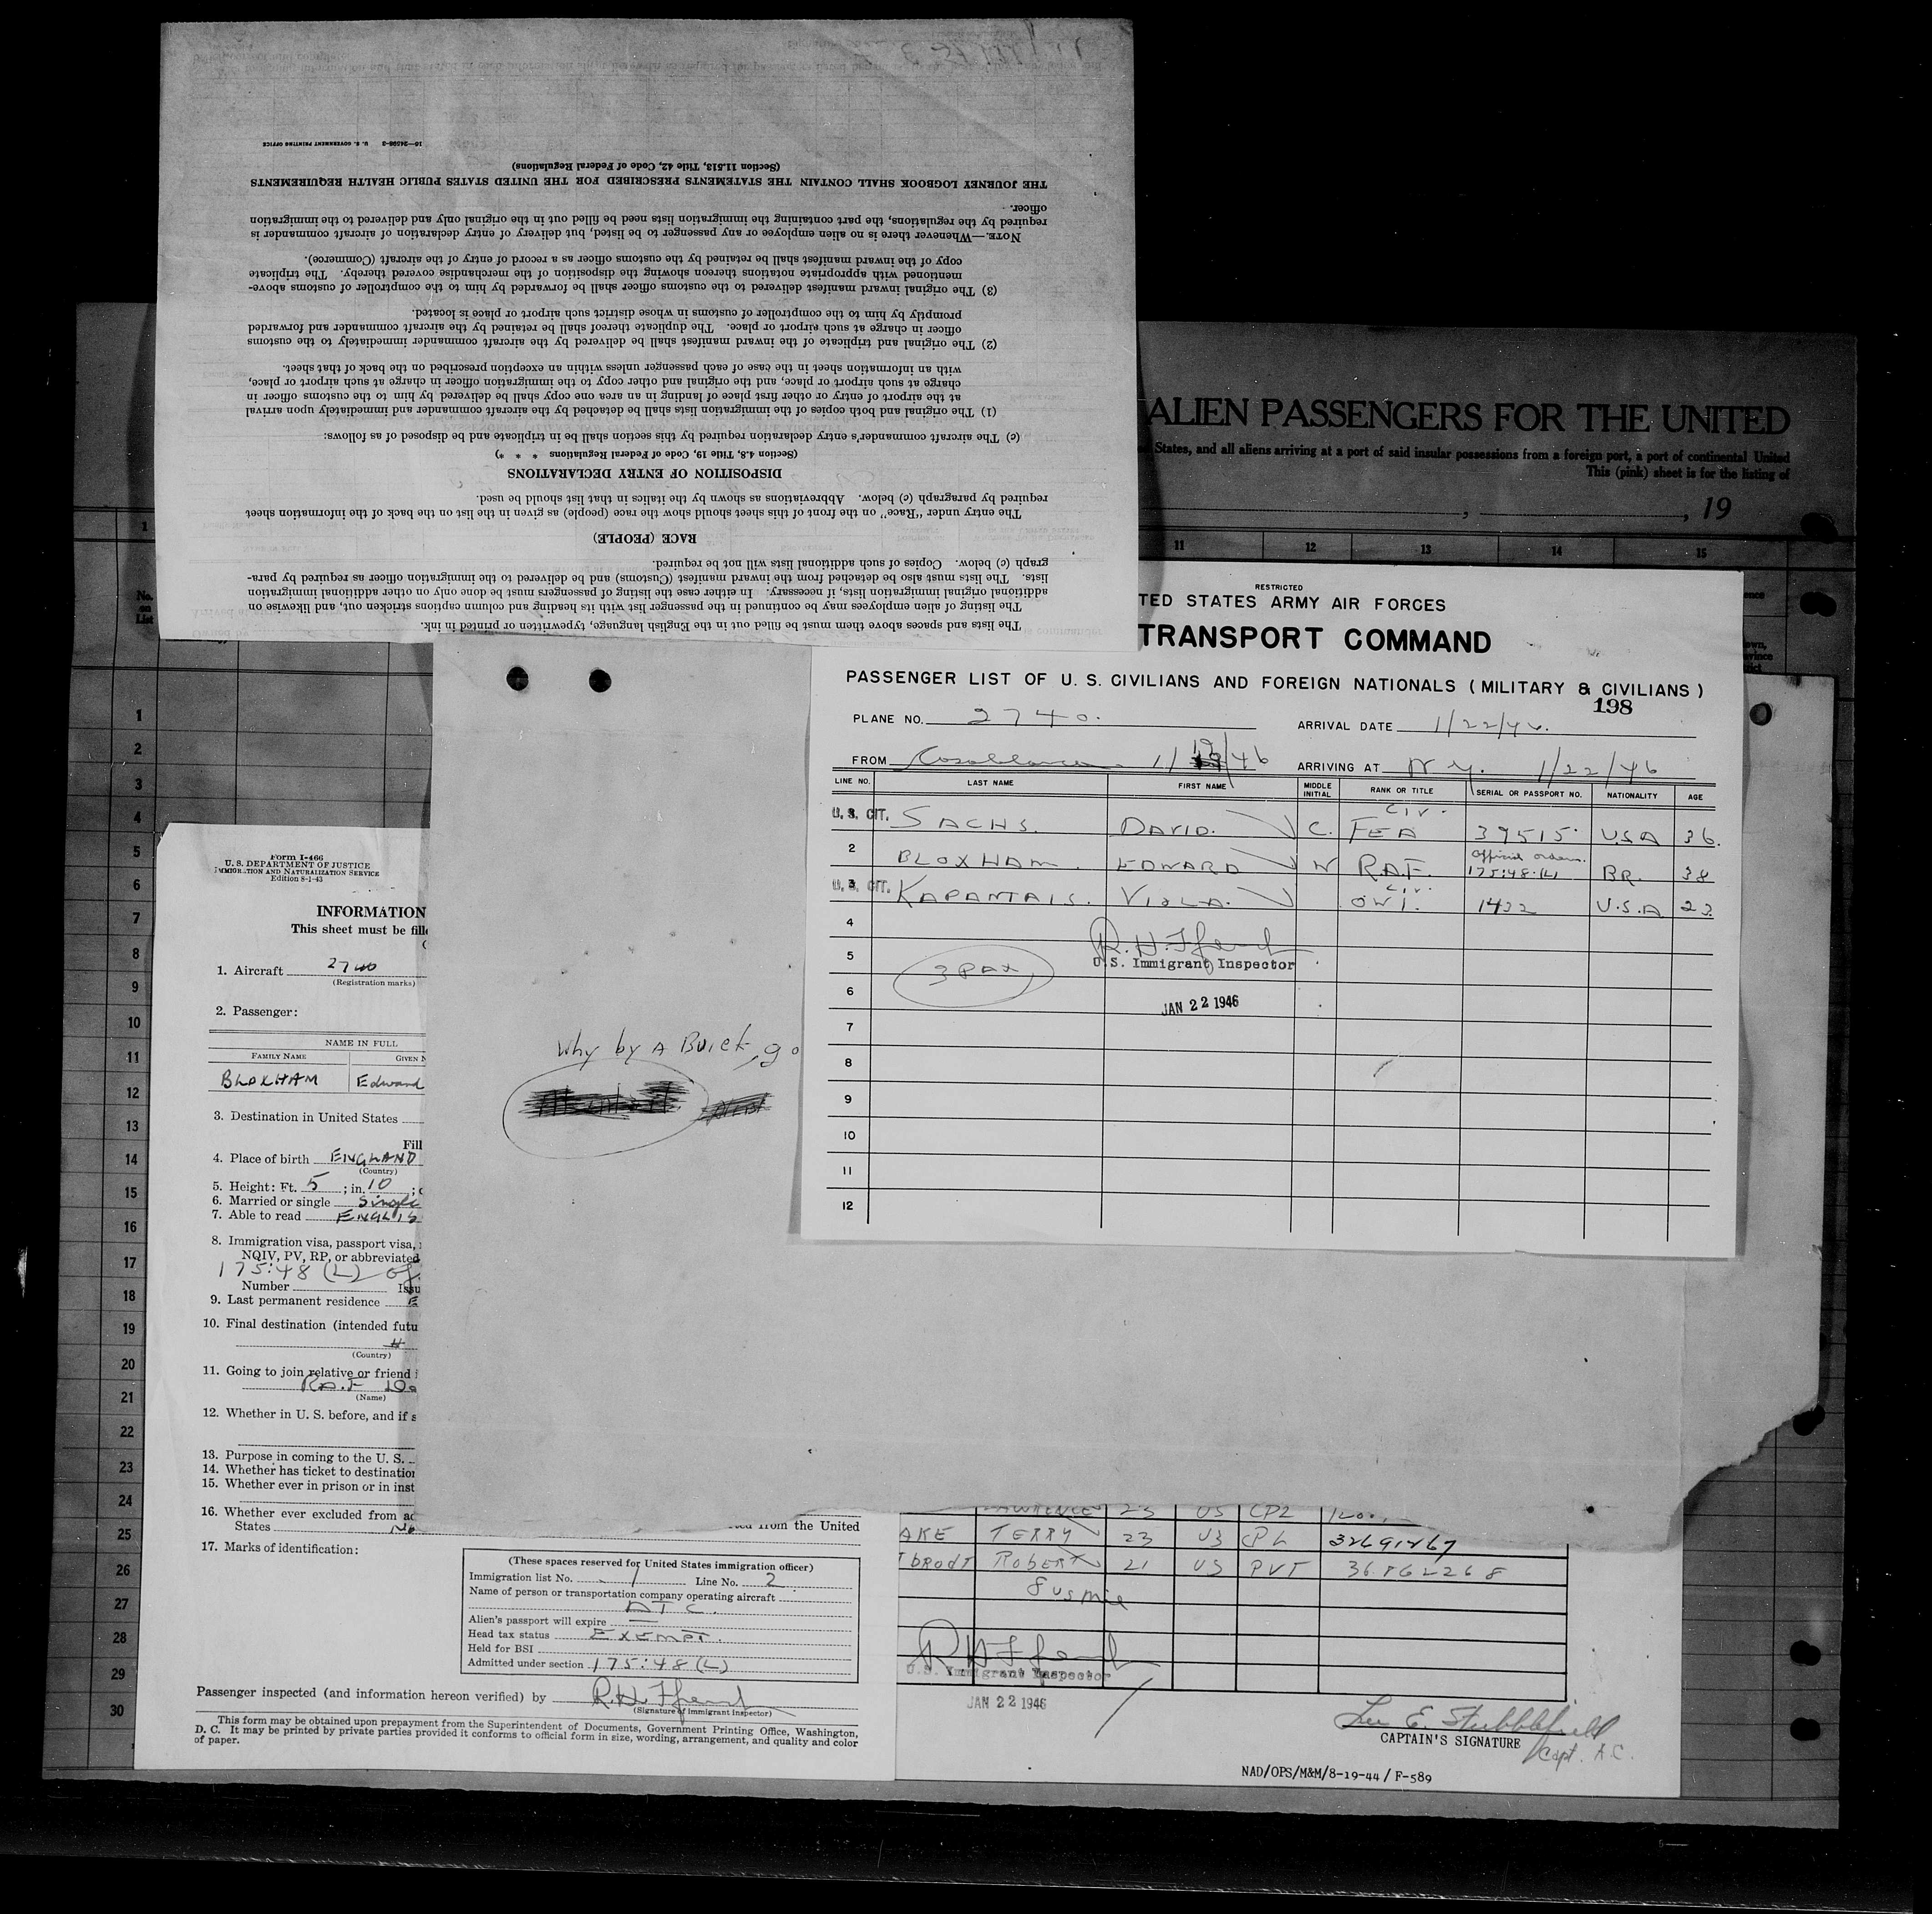 16—24598-3 U. S. GOVERNMENT PRINTING OFFICE
(Section 11.513, Title 42, Code of Federal Regulations)
THE JOURNEY LOGBOOK SHALL CONTAIN THE STATEMENTS PRESCRIBED FOR THE UNITED STATES PUBLIC HEALTH REQUIREMENTS
officer.
required by the regulations, the part containing the immigration lists need be filled out in the original only and delivered to the immigration
NOTE.—Whenever there is no alien employee or any passenger to be listed, but delivery of entry declaration of aircraft commander is
copy of the inward manifest shall be retained by the customs officer as a record of entry of the aircraft (Commerce).
mentioned with appropriate notations thereon showing the disposition of the merchandise covered thereby. The triplicate
(3) The original inward manifest delivered to the customs officer shall be forwarded by him to the comptroller of customs above-
promptly by him to the comptroller of customs in whose district such airport or place is located.
officer in charge at such airport or place. The duplicate thereof shall be retained by the aircraft commander and forwarded
(2) The original and triplicate of the inward manifest shall be delivered by the aircraft commander immediately to the customs
with an information sheet in the case of each passenger unless within an exception prescribed on the back of that sheet.
charge at such airport or place, and the original and other copy to the immigration officer in charge at such airport or place,
at the airport of entry or other first place of landing in an area one copy shall be delivered by him to the customs officer in
(1) The original and both copies of the immigration lists shall be detached by the aircraft commander and immediately upon arrival
(c) The aircraft commander's entry declaration required by this section shall be in triplicate and be disposed of as follows:
(Section 4.8, Title 19, Code of Federal Regulations * * *)
DISPOSITION OF ENTRY DECLARATIONS
required by paragraph (c) below. Abbreviations as shown by the italics in that list should be used.
The entry under "Race" on the front of this sheet should show the race (people) as given in the list on the back of the information sheet
RACE (PEOPLE)
graph (c) below. Copies of such additional lists will not be required.
lists. The lists must also be detached from the inward manifest (Customs) and be delivered to the immigration officer as required by para-
additional original immigration lists, if necessary. In either case the listing of passengers must be done only on other additional immigration
The listing of alien employees may be continued in the passenger list with its heading and column captions stricken out, and likewise on
The lists and spaces above them must be filled out in the English language, typewritten or printed in ink.
ALIEN PASSENGERS FOR THE UNITED
States, and all aliens arriving at a port of said insular possessions from a foreign port, a port of continental United
This (pink) sheet is for the listing of
, , 19
1 11 12 13 14 15
No. on List
RESTRICTED
TED STATES ARMY AIR FORCES
TRANSPORT COMMAND
PASSENGER LIST OF U. S. CIVILIANS AND FOREIGN NATIONALS (MILITARY & CIVILIANS)
198
PLANE NO. 2740. ARRIVAL DATE 1/22/46.
FROM Casablanca 1/19/46 ARRIVING AT N.Y. 1/22/46
LINE NO. LAST NAME FIRST NAME MIDDLE INITIAL RANK OR TITLE SERIAL OR PASSPORT NO. NATIONALITY AGE
U.S. CIT. SACHS. DAVID. C. CIV. FEA 39515 U.S.A 36.
2 BLOXHAM. EDWARD W R.A.F. Official orders. 175:48.(L) BR. 38
U.S. CIT. 3 KAPANTAIS. VIOLA. CIV. OWI. 1422 U.S.A 23.
4
5 3 PAX
U.S. Immigrant Inspector
6
JAN 22 1946
7
8
9
10
11
12
Why by A Buick, go
1
2
3
4
5
6
7
8
9
10
11
12
13
14
15
16
17
18
19
20
21
22
23
24
25
26
27
28
29
30
Form I-466
U. S. DEPARTMENT OF JUSTICE
IMMIGRATION AND NATURALIZATION SERVICE
Edition 8-1-43
INFORMATION
This sheet must be fille
1. Aircraft 2740
(Registration marks)
2. Passenger:
NAME IN FULL
FAMILY NAME GIVEN N
BLOXHAM Edward
3. Destination in United States
Fill
4. Place of birth ENGLAND
(Country)
5. Height: Ft. 5 ; in. 10 ;
6. Married or single Single
7. Able to read ENGLIS
8. Immigration visa, passport visa,
NQIV, PV, RP, or abbreviated
175:48 (L) Of
Number Issu
9. Last permanent residence E
10. Final destination (intended futu
(Country)
11. Going to join relative or friend
R.A.F
(Name)
12. Whether in U. S. before, and if s
13. Purpose in coming to the U. S.
14. Whether has ticket to destination
15. Whether ever in prison or in inst
16. Whether ever excluded from ad
States No from the United
17. Marks of identification:
(These spaces reserved for United States immigration officer)
Immigration list No. 1 Line No. 2
Name of person or transportation company operating aircraft
A T C.
Alien's passport will expire —
Head tax status EXEMPT.
Held for BSI
Admitted under section 175:48 (L)
Passenger inspected (and information hereon verified) by
(Signature of Immigrant Inspector)
This form may be obtained upon prepayment from the Superintendent of Documents, Government Printing Office, Washington,
D. C. It may be printed by private parties provided it conforms to official form in size, wording, arrangement, and quality and color
of paper.
LAWRENCE 23 US CPL
AKE TERRY 23 US CPL 32691467
BRODT ROBERT 21 US PVT 36862268
8 US Mil
U.S. Immigrant Inspector
JAN 22 1946
Lee E. Stubblefield
CAPTAIN'S SIGNATURE
Capt. A.C.
NAD/OPS/M&M/8-19-44 / F-589